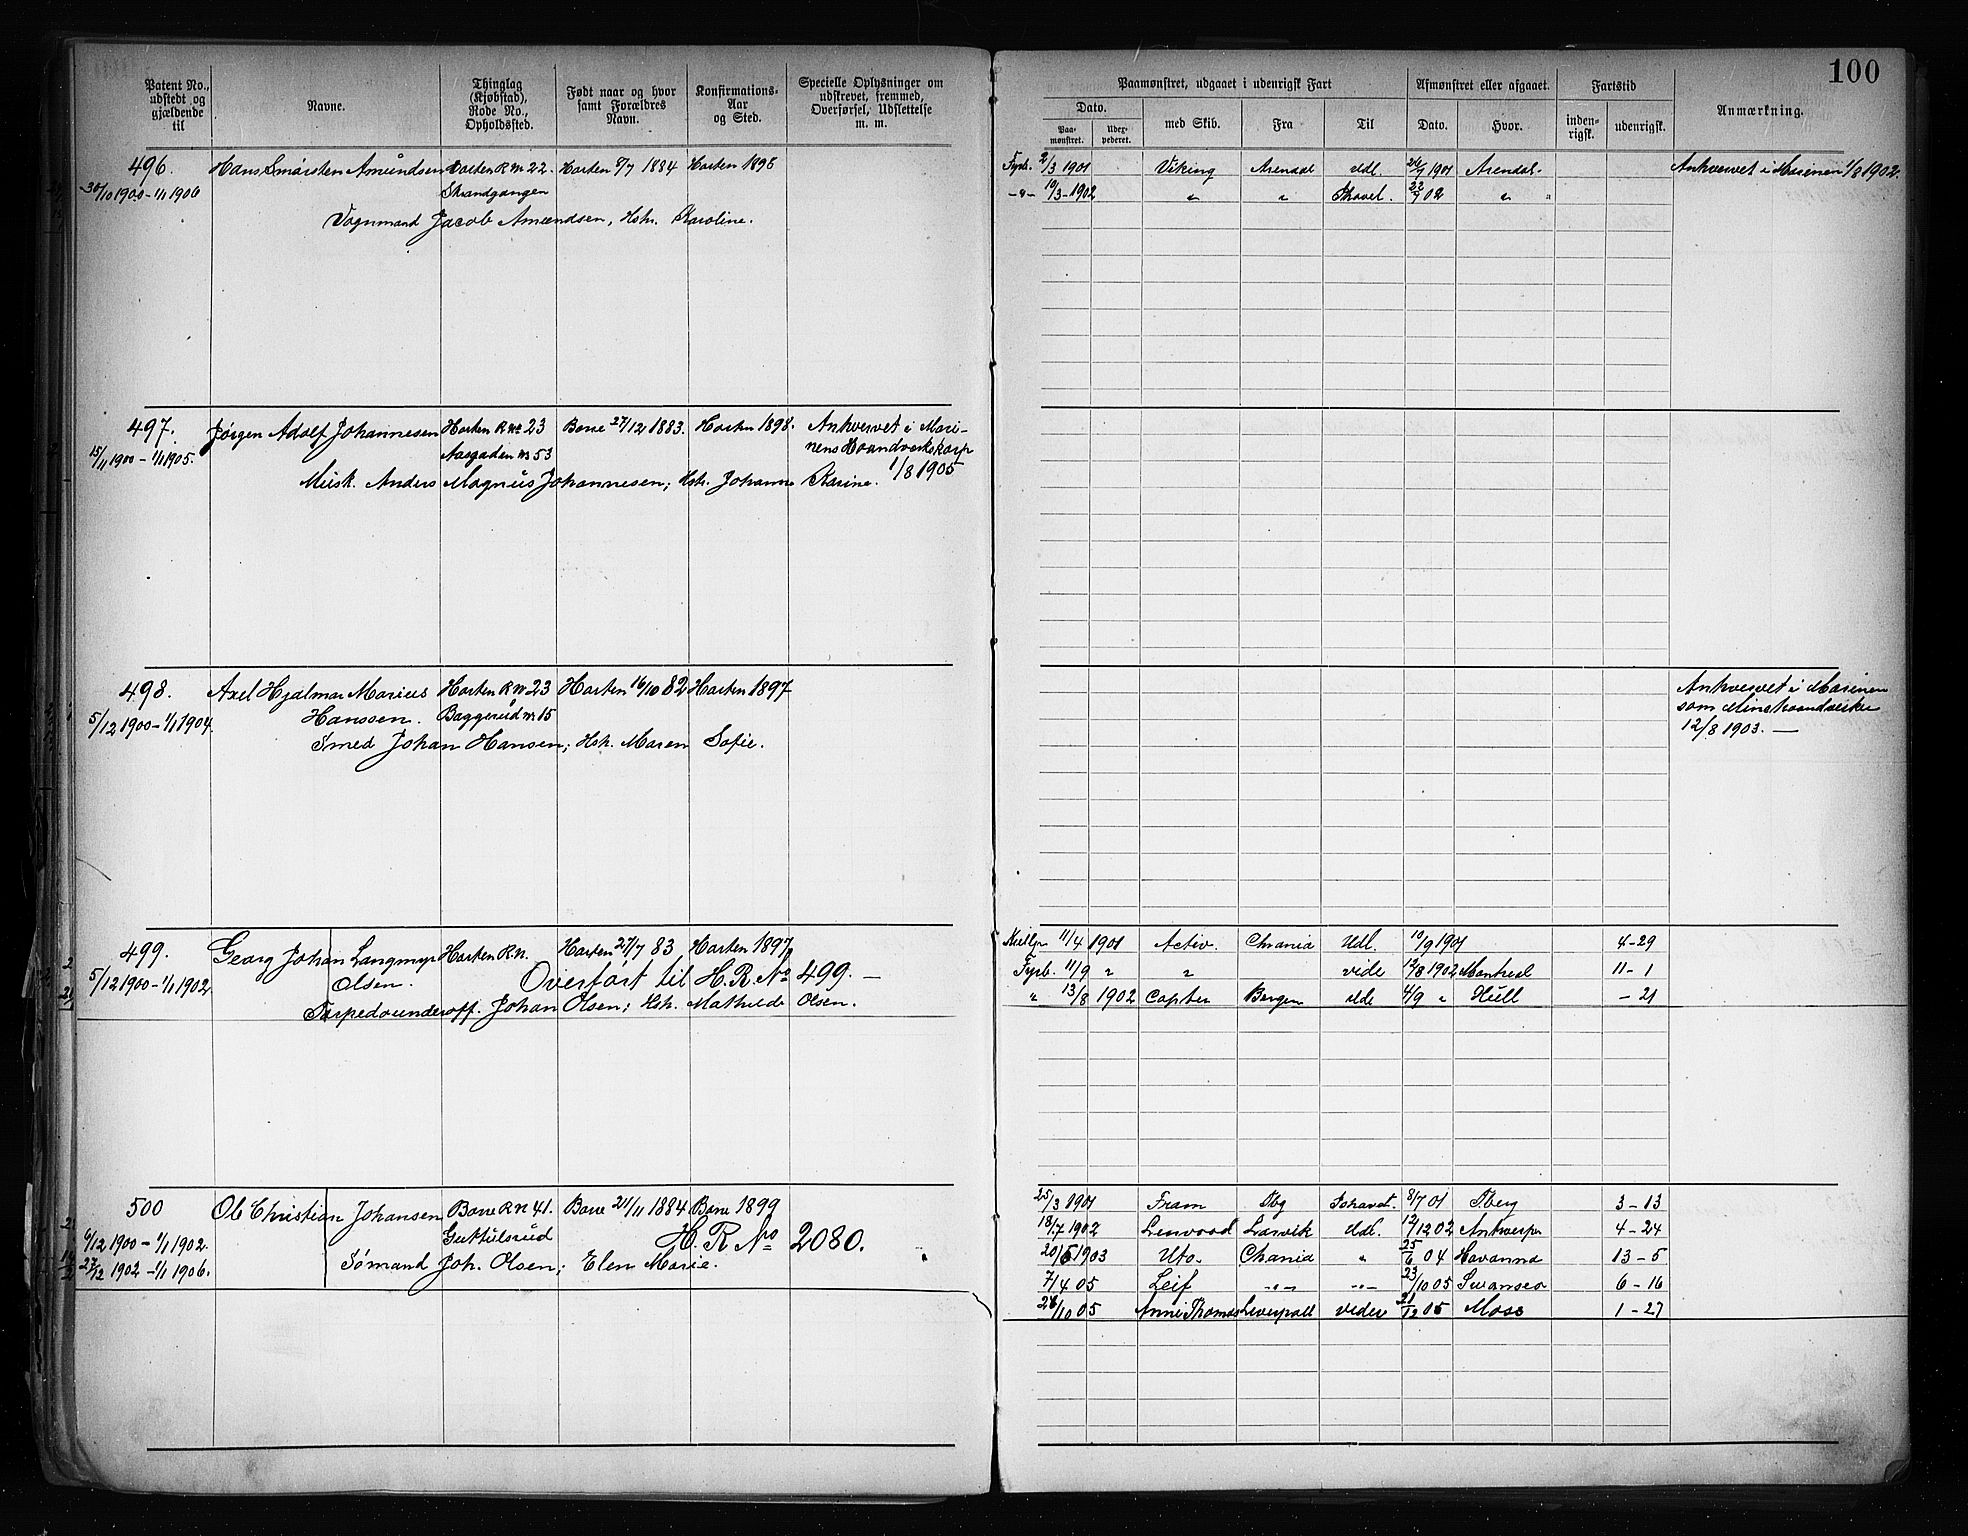 Patent No., udstedt og gjældende til
Navne.
Thinglag (Kjøbstad), Rode No., Opholdssted.
Født naar og hvor samt Forældres Navn.
Konfirmations-Aar og Sted.
Specielle Oplysninger om udskrevet, fremmed, Overførsel, Udslettelse m. m.
Paamønstret, udgaaet i udenrigsk Fart
Dato.
Paa-mønstret.
Uder-pederet.
med Skib.
Fra
Til
Afmønstret eller afgaaet.
Dato.
Hvor.
Fartstid
inden-rigsk.
udenrigsk.
Anmærkning.
100
496. Hans Amundsen Horten R No 22. Horten 8/7 1884 Horten 1898
30/10 1900 – 1/1 1906 Strandgangen
Vognmand Jacob Amundsen, Hstr. Karoline.
Fyrb. 2/3 1901 Viking Arendal Udl. 1901 Arendal. Ankvervet i Marinen 1/8 1902.
-"- 19/3-1902 " " Travel. 02 " "
497. Jørgen Adolf Johannesen Horten R No 23 Borre 27/12 1883. Horten 1898. Ankvervet i Mari-
15/11 1900 – 1/1 1905. Aasgaden No 53 nens Haandverkskorp
Musk. Anders Magnus Johannesen; Hstr. Johanne Karine. 1/8 1905
498. Axel Hjalmar Marius Horten R No 23 Horten 16/10 82 Horten 1897
5/12 1900 – 1/1 1904. Hanssen. Baggerud No 15
Smed Johan Hansen; Hstr. Maren Sofie.
Ankvervet i Marinen
som Minehaandverker
12/8 1903. —
499. Georg Johan Langmyr Horten R No. Horten 27/7 83 Horten 1897
5/12 1900 – 1/1 1902. Olsen. Overført til H. R. No 499. —
Torpedounderoff. Johan Olsen; Hstr. Mathilde Olsen.
11/4 1901 Activ. Chrania Udl. 10/9 1901 4 – 29
Fyrb. 11/9 " " vide 12/8 1902 Montreal 11 – 1
" 13/8 1902 Capten Bergen 4/9 " Hull – 21
500 Ole Christian Johansen Borre R No 41. Borre 21/11 1884 Borre 1899
6/12 1900 – 1/1 1902. Guttulsrud H. R. No 2080.
27/12 1902 – 1/1 1906. Sømand Joh. Olsen; Elen Marie.
25/3 1901 Fram Tbg 8/7 01 Tberg 3 – 13
18/7 1902 Lenwood Larvik Udl. 12/12 02 Antwerpn 4 – 24
20/5 1903 Uto. Chrania " 25/6 04 Havanna 13 – 5
7/4 05 Leif -"- -"- 23/10 05 Swansea 6 – 16
24/10 05 Anne Thomas Liverpool videre 21/12 05 Moss 1 – 27